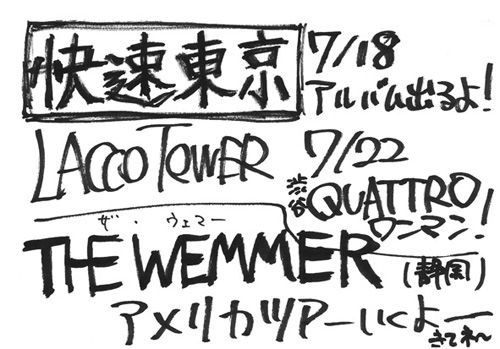 快速東京 7/18
アルバム出るよ！
LACCO TOWER 7/22
渋谷 QUATTRO
ワンマン！
ザ・ウェマー
THE WEMMER (静岡)
アメリカツアーいくよー
きてネ〜